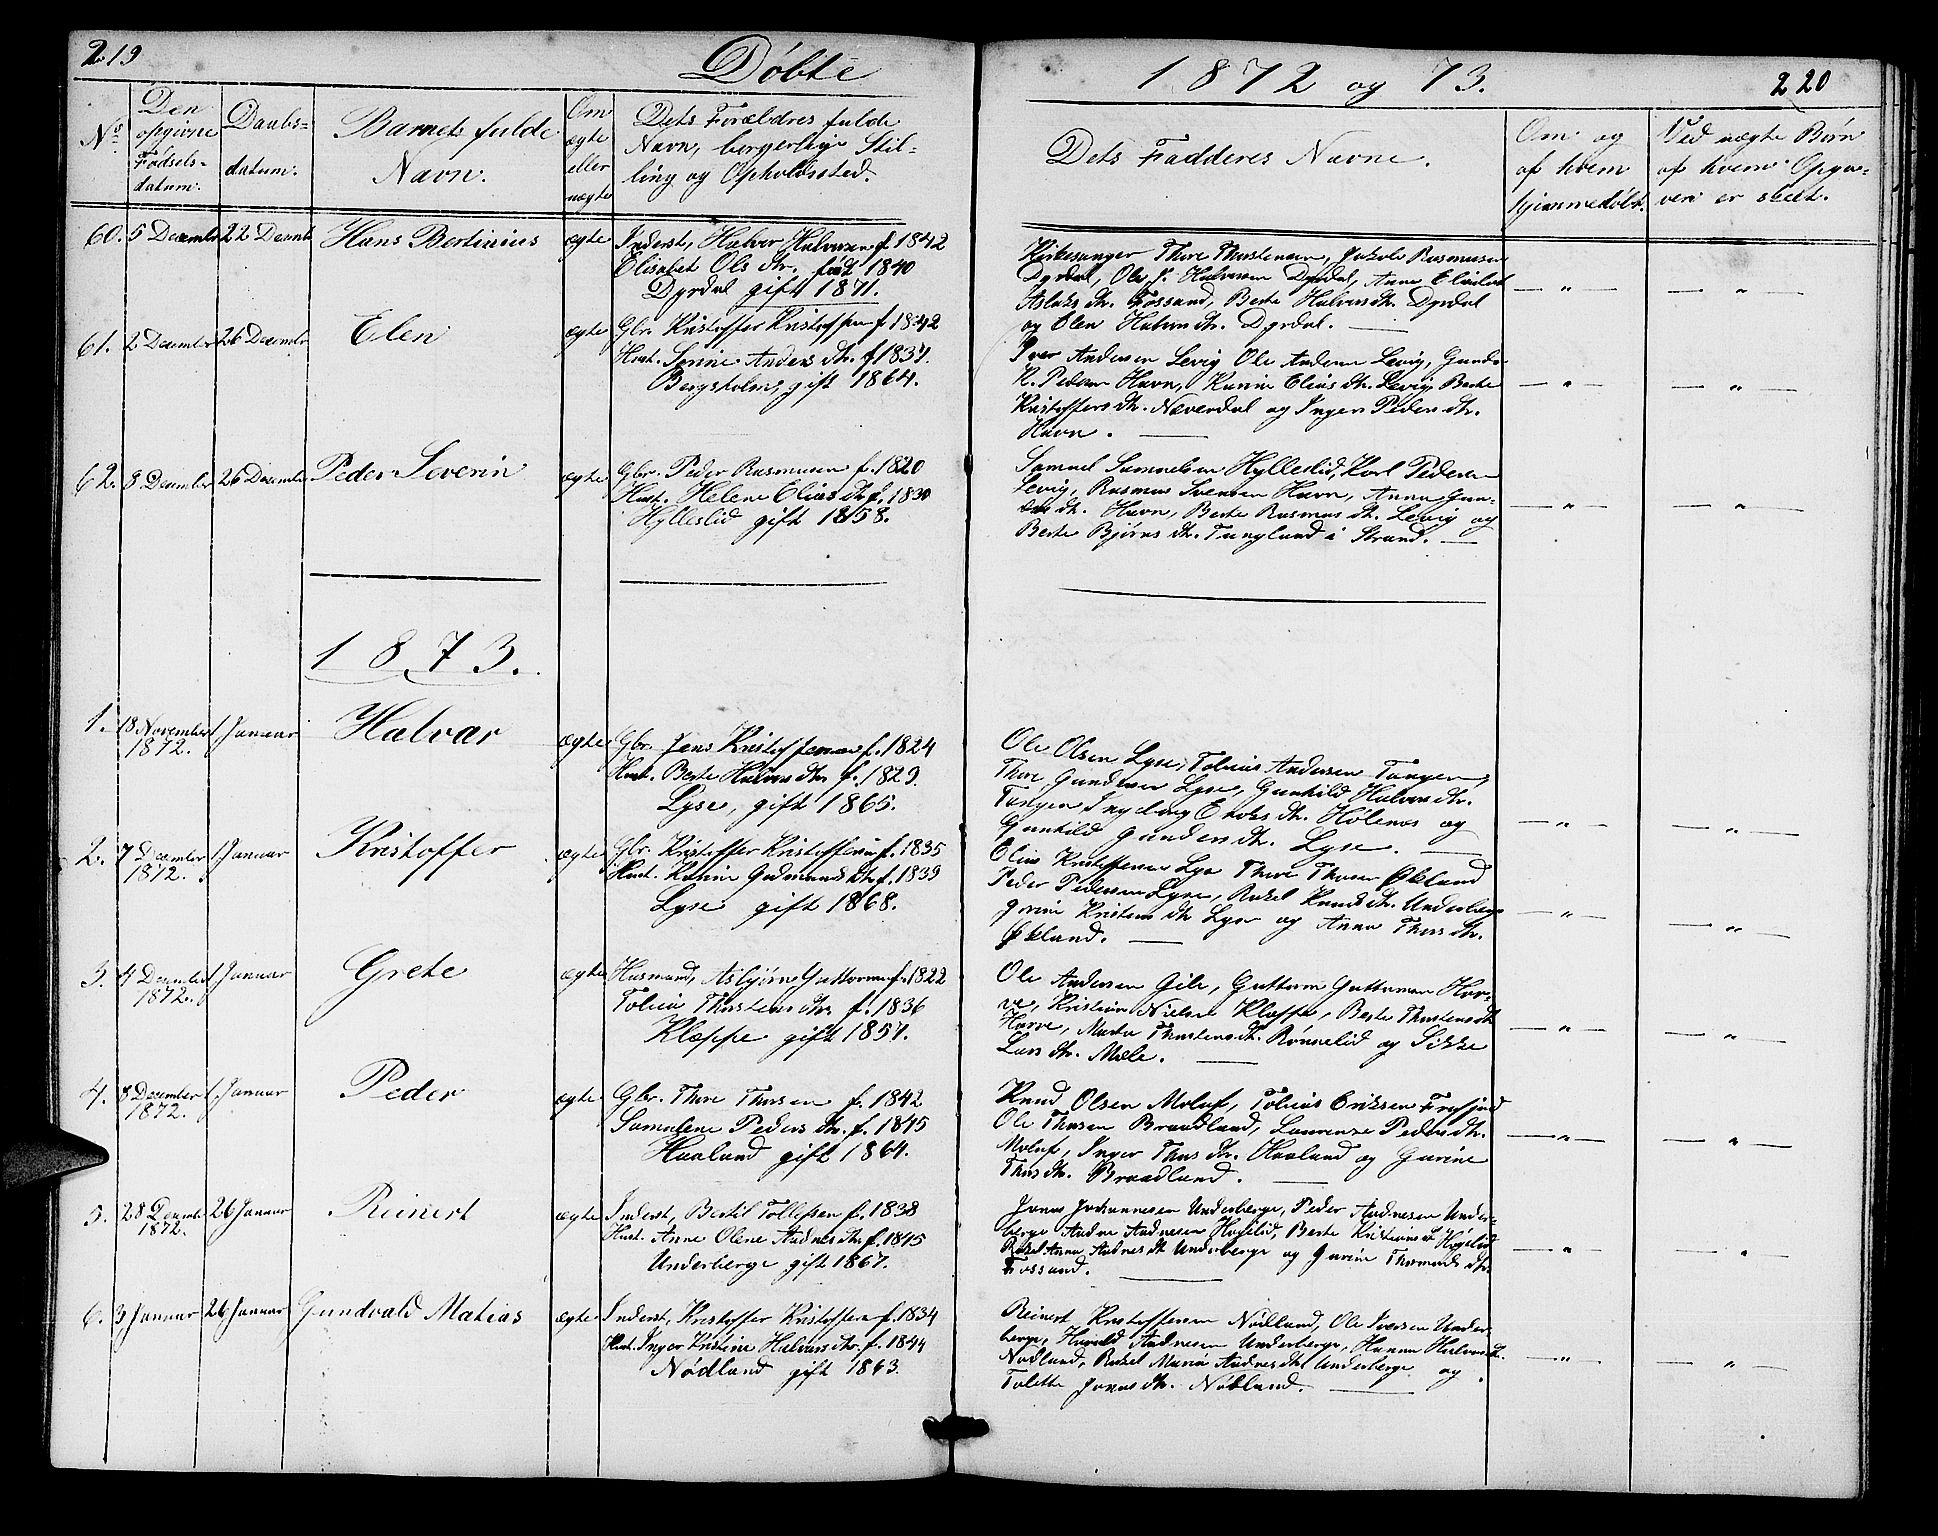 219
Døbte
1872 og 73.
220
No.
Den opgivne Fødsels-datum.
Daabs-datum.
Barnets fulde Navn.
Om ægte eller uægte
Dets Forældres fulde
Navn, borgerlige Stil-
ling og Opholdssted.
Dets Fadderes Navne.
Om og
af hvem
hjemmedøbt.
Ved uægte Børn
af hvem Opga-
ven er skeet.
60. 5 December 22 Decemb Hans Bertinius ægte Inderst, Halvor Halvorsen f. 1842
Elisabet Ols dtr. født 1840
Dyrdal gift 1871.
Kirkesanger Thore Thorstensen, Jakob Rasmussen
Dyrdal, Ole Halvorsen Dyrdal, Anna Elisabet
Aslaks dtr. Fossand, Berte Halvors dtr. Dyrdal
og Elen Halvors dtr. Dyrdal.
— " — — " —
61. 2 December 26 December Elen ægte Gbr. Kristoffer Kristoffersen f. 1842
Hust. Serine Anders dtr. f 1837.
Bergsholm, gift 1864.
Iver Andersen Levig Ole Andersen Levig, Gunder
K. Pedersen Havn, Karine Elias dtr. Levig Berte
Kristoffers dtr. Næverdal og Inger Peders dtr.
Havn.
— " — — " —
62. 8 December 26 December Peder Severin ægte Gbr. Peder Rasmussen f. 1820
Hust. Helene Elias dtr f. 1830
Hylleslid gift 1858.
Samuel Samuelsen Hylleslid, Karl Pedersen
Levig, Rasmus Svensen Havn, Anna Gun-
ders dtr. Havn, Berte Rasmus dtr. Levig og
Berte Bjørns dtr. Tungland i Strand.
— " — — " —
1873.
1. 18 November 1872. 1 Januar Halvar ægte Gbr. Jens Kristoffersen f. 1824
Hust. Berte Halvors dtr f. 1829.
Lyse, gift 1865.
Ole Olsen Lyse, Tobias Andersen Tangen,
Thore Gundersen Lyse, Gunhild Halvors dtr.
Tangen Ingeborg Enoks dtr. Helenes og
Gunhild Gunders dtr. Lyse.
— " — — " —
2. 7 December 1872. 1 Januar Kristoffer ægte Gbr. Kristoffer Kristoffersen f. 1835
Hust. Karine Gudmunds dtr f. 1839
Lyse gift 1868.
Elias Kristoffersen Lyse Thore Thorsen Økland
Peder Pedersen Lyse, Rakel Knuds dtr. Underberge
Gurine Kristens dtr Lyse og Anna Thors dtr.
Økland.
— " — — " —
3. 4 December 1872. 1 Januar Grete ægte Husmand, Asbjørn Guttormsen f. 1822
Tolina Thorstens dtr f. 1836
Klæppe gift 1857.
Ole Andersen Gile, Guttorm Guttormsen Hor-
ve, Kristian Nielsen Klæppe, Berte Thorstens dtr
Horve, Marta Thorstens dtr. Rønnelid og Sikke
Lars dtr. Mæle.
— " — — " —
4. 8 December 1872. 1 Januar Peder ægte Gbr. Thore Thorsen f. 1842
Samalene Peders dtr. f. 1845
Haaland gift 1864.
Knud Olsen Moluf, Tobias Eriksen Frafjord
Ole Thorsen Braadland, Laurense Peders dtr.
Moluf, Inger Thors dtr. Haaland og Gurine
Thors dtr. Braadland.
— " — — " —
5. 28 Decembr 1872. 26 Januar Reinert ægte Inderst, Bertil Tollefsen f. 1838
Hust. Anne Olene Audnes dtr f. 1845
Underberge gift 1867.
Jonas Johannesen Underberge, Peder Audnesen Under-
berge Audne Audnesen Høgelid, Berte Kristians d Høgelid
Rakel Anna Audnes dt Underberge og Gurine Thormods dtr.
Fossand.
— " — — " —
6. 3 Januar 26 Januar Gundvald Matias ægte Inderst, Kristoffer Kristoffersen f. 1834
Hust. Inger Kristine Halvors dtr. f. 1844
Nødland gift 1863.
Reinert Kristoffersen Nødland, Ole Iversen Under-
berge, Harald Audnesen Underberge, Hanna Halvorsdt.
Nødland, Rakel Maria Audnes dtr Underberge og
Tolette Jonas dtr. Nødland.
— " — — " —